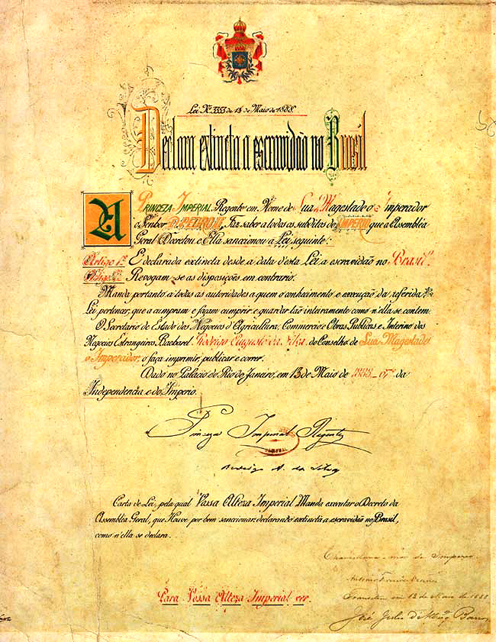 Lei Nº 3353 de 13 de Maio de 1888.
Declara extincta a escravidão no Brasil
A PRINCEZA IMPERIAL, Regente em Nome de Sua Magestade o Imperador
o Senhor D. PEDRO II, Faz saber a todos os subditos do IMPERIO que a Assembléa
Geral Decretou e Ella sanccionou a Lei seguinte:
Artigo 1º: É declarada extincta desde a data d'esta Lei a escravidão no Brazil.
Artigo 2º: Revogam-se as disposições em contrario.
Manda portanto a todas as autoridades a quem o conhecimento e execução da referida
Lei pertencer, que a cumpram e façam cumprir e guardar tão inteiramente como n'ella se contem.
O Secretario de Estado dos Negocios d'Agricultura, Commercio e Obras Publicas e Interino dos
Negocios Estrangeiros, Bacharel Rodrigo Augusto da Silva, do Conselho de Sua Magestade
o Imperador, o faça imprimir, publicar e correr.
Dado no Palacio do Rio de Janeiro, em 13 de Maio de 1888 - 67º da
Independencia e do Imperio.
Princeza Imperial Regente
Rodrigo A. da Silva
Carta de Lei, pela qual Vossa Alteza Imperial Manda executar o Decreto da
Assembléa Geral, que Houve por bem sanccionar, declarando extincta a escravidão no Brasil,
como n'ella se declara.
Para Vossa Alteza Imperial ver.
Chancellaria-mór do Imperio
Antonio Ferreira Vianna
Transitou em 13 de Maio de 1888
José Julio de Albuqe Barros